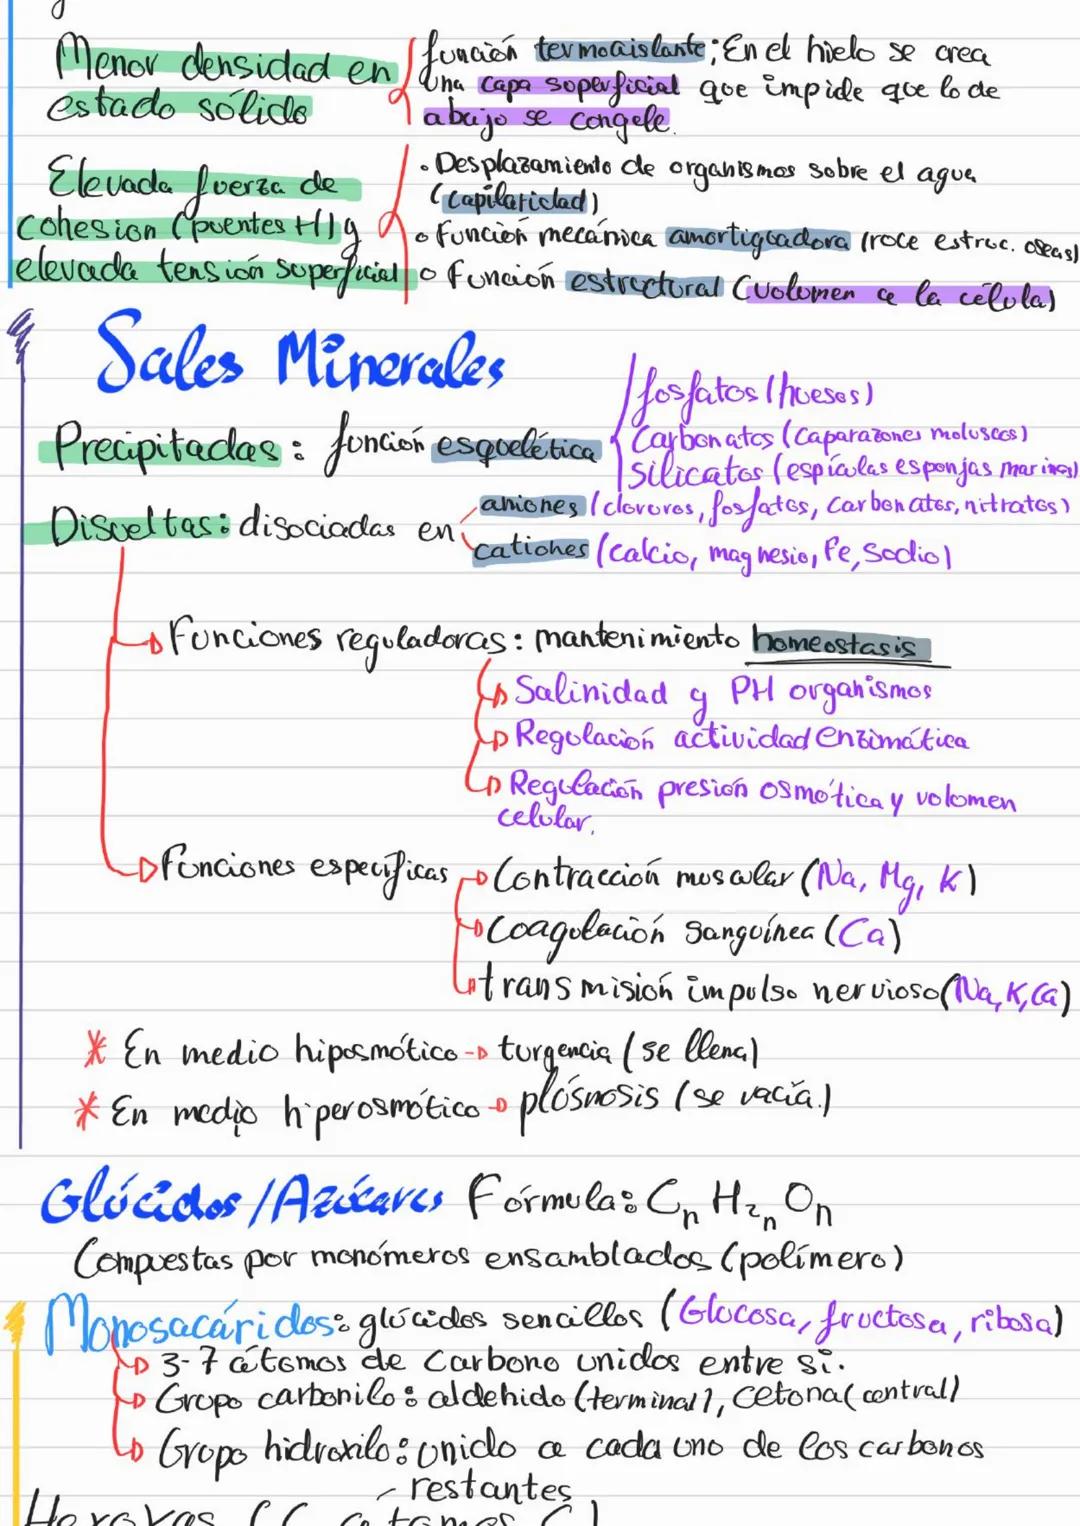 Menor densidad en
estado sólido
función termoaislante; En el hielo se crea
una capa superficial que impide que lo de
abajo se congele.
Elevada fuerza de
cohesion (puentes H) y
elevada tensión superficial
· Desplazamiento de organismos sobre el agua
(capilaridad)
o función mecánica amortiguadora (roce estruc. oseas)
o Función estructural (volumen a la célula)
Sales Minerales
Precipitadas: función esquelética
fosfatos (huesos)
Carbonatos (Caparazones moluscos)
silicatos (espículas esponjas marinas)
Disueltas: disociadas en
aniones (cloruros, fosfatos, carbonatos, nitratos)
cationes (calcio, magnesio, Fe, Sodio)
Funciones reguladoras: mantenimiento homeostasis
Salinidad y PH organismos
Regulación actividad enzimática
Regulación presión osmótica y volumen
celular.
Funciones específicas
Contracción muscular (Na, Mg, K)
Coagulación sanguínea (Ca)
transmisión impulso nervioso (Na, K, Ca)
* En medio hiposmótico → turgencia (se llena)
* En medio hiperosmótico → plósnosis (se vacía.)
Glúcidos/Azúcares Fórmula: Cn H2n On
Compuestas por monómeros ensamblados (polímero)
Monosacáridos: glúcidos sencillos (Glucosa, fructosa, ribosa)
3-7 átomos de Carbono unidos entre sí.
Grupo carbonilo: aldehido (terminal), cetona (central)
Grupo hidroxilo: unido a cada uno de los carbonos
restantes